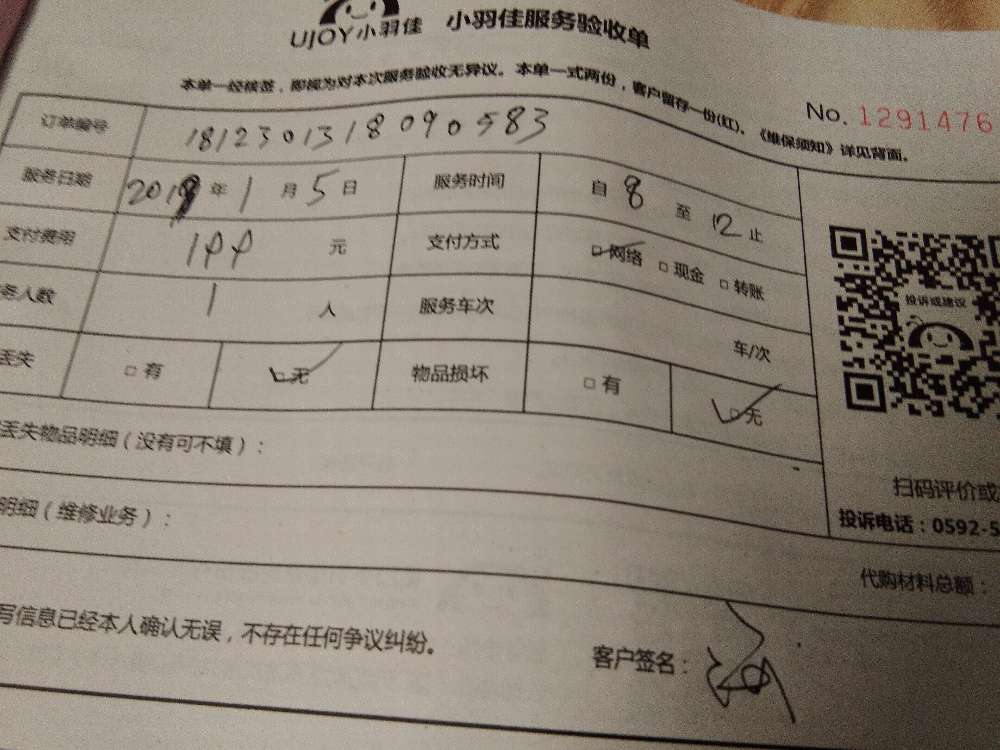 UJOY小羽佳 小羽佳服务验收单
本单一经核签，即视为对本次服务验收无异议。本单一式两份，客户留存一份(红)。《维保须知》详见背面。
No. 1291476
订单编号 1812301318090583
服务日期 2019年1月5日 服务时间 自8至12止
支付费用 199元 支付方式 网络 现金 转账
务人数 1人 服务车次 车/次
丢失 有 无 物品损坏 有 无
投诉或建议
丢失物品明细（没有可不填）：
扫码评价或
明细（维修业务）：
投诉电话：0592-5
代购材料总额：
写信息已经本人确认无误，不存在任何争议纠纷。
客户签名：